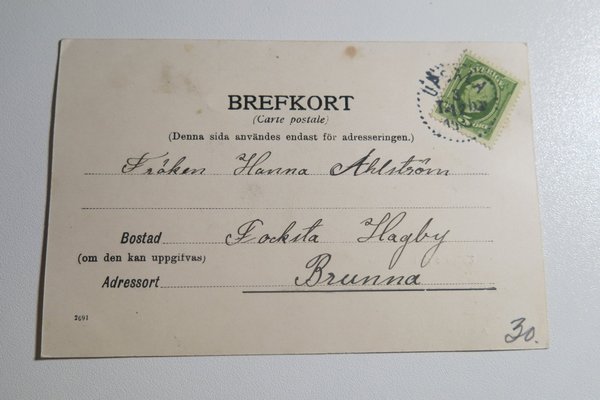 BREFKORT
(Carte postale)
(Denna sida användes endast för adresseringen.)
Fröken Hanna Ahlström
Bostad Focksta Hagby
(om den kan uppgifvas)
Adressort Brunna
7691
30.
SVERIGE